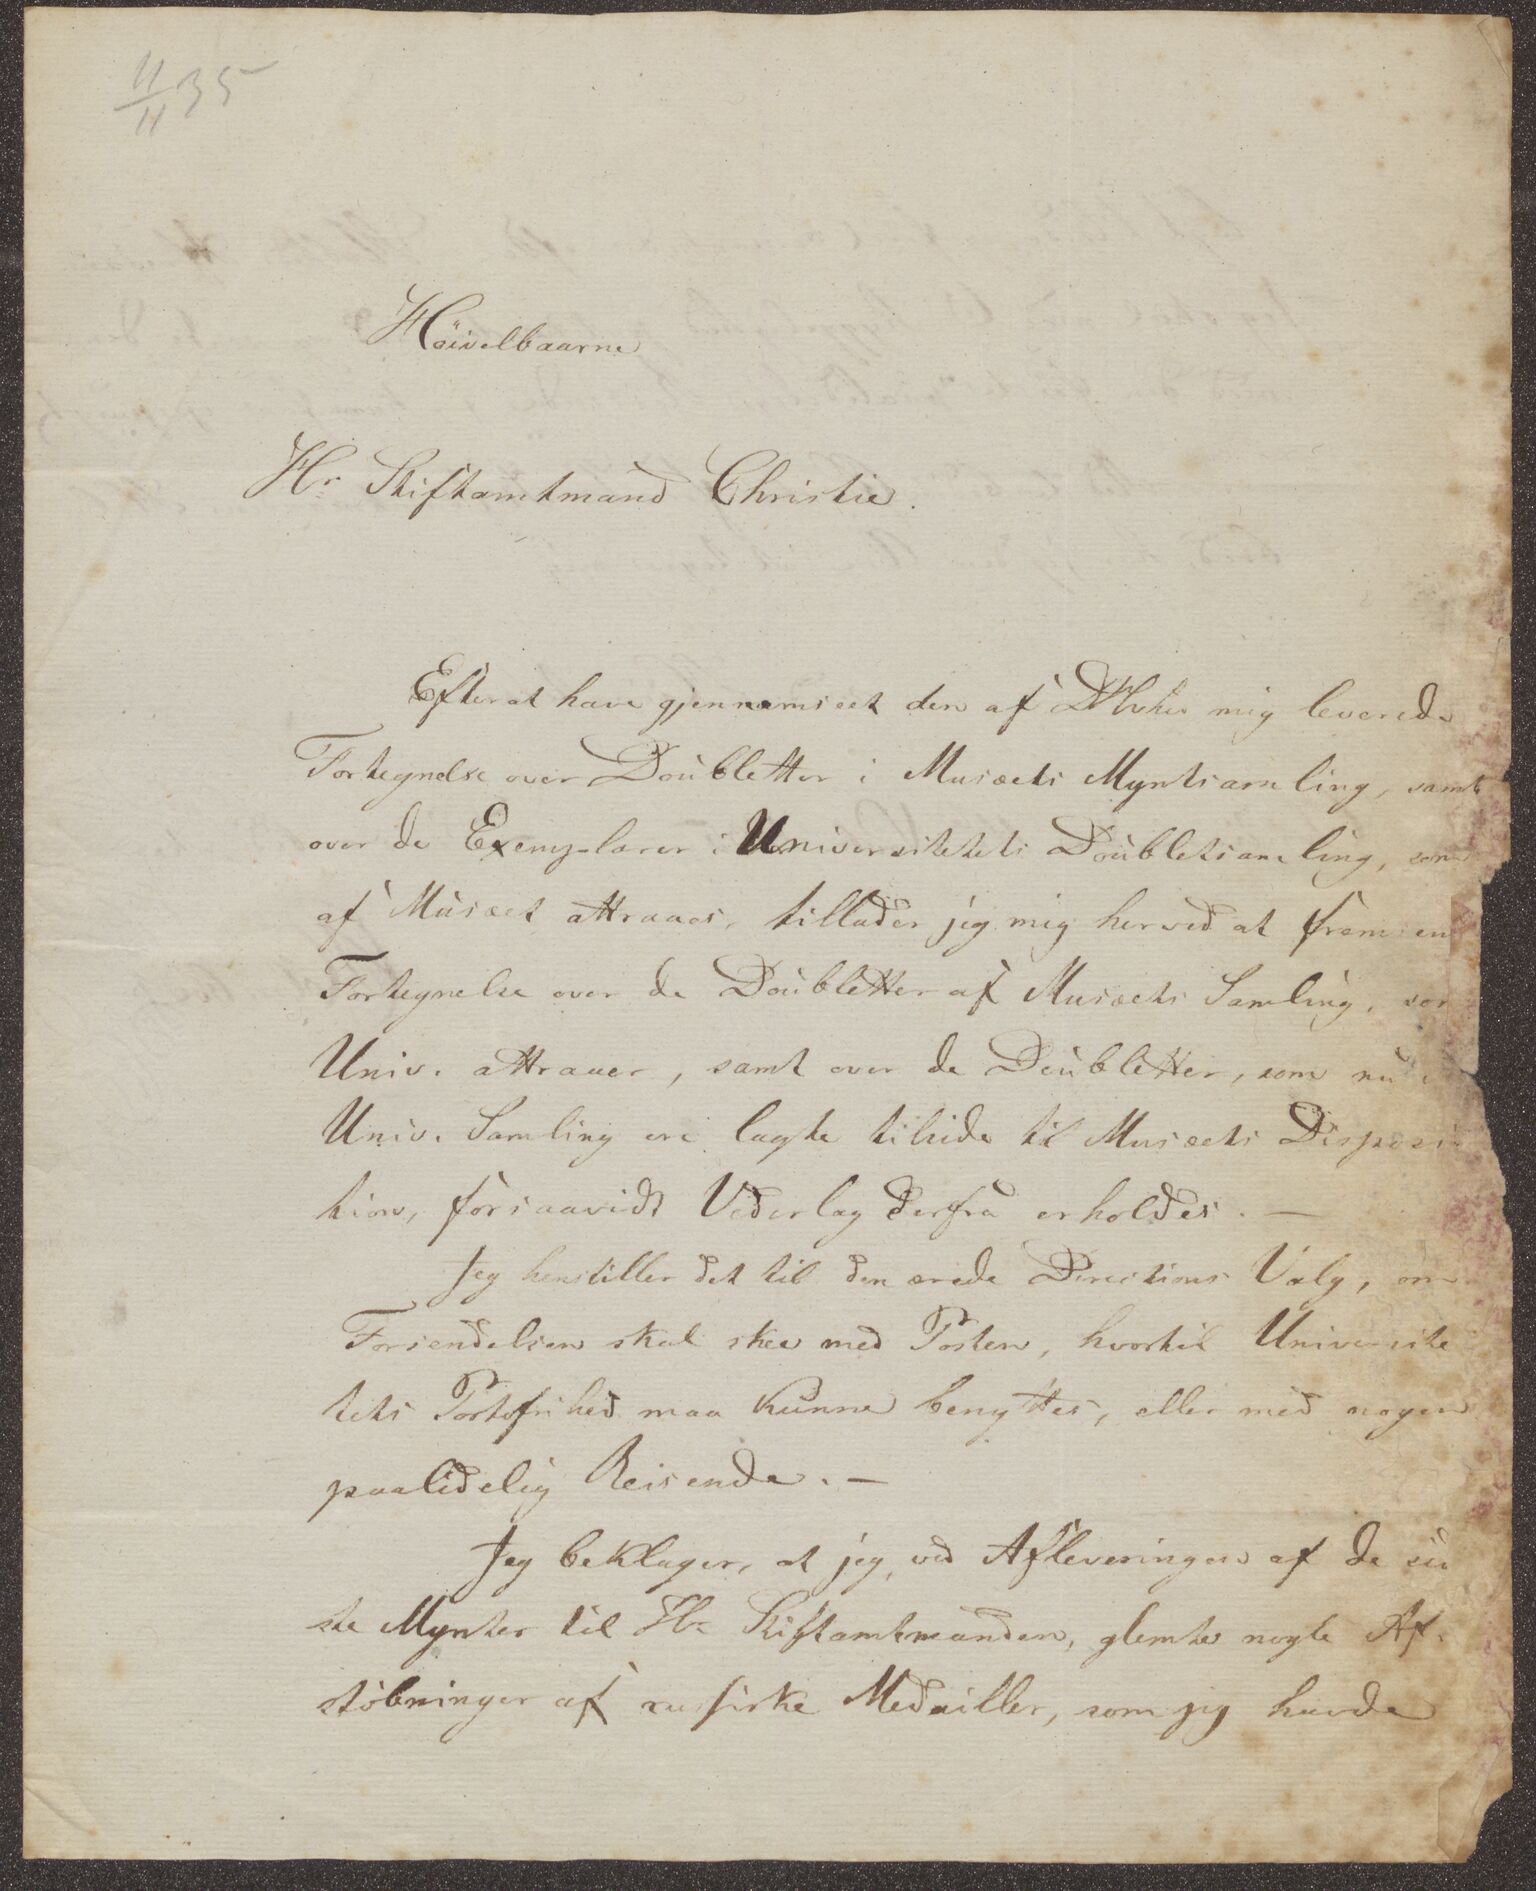 11/11 35
Höivelbaarne
Hr Stiftamtmand Christie.
Efter at have gjennemseet den af mig leverede
Fortegnelse over Doubletter i Musæets Myntsamling, samt
over de Exemplarer i Universitetets Doubletsamling, som
af Musæet attraaes, tillader jeg mig herved at frem en
Fortegnelse over de Doubletter af Musæets Samling, som
Univ. attraaer, samt over de Doubletter, som nu i
Univ. Samling ere lagte tilside til Musæets Disposi-
tion, forsaavidt Vederlag derfra erholdes. —
Jeg henstiller det til den ærede Directions Valg, om
Forsendelsen skal skee med Posten, hvortil Universite
tets Portofrihed maa kunne benyttes, eller med nogen
paalidelig Reisende. —
Jeg beklager, at jeg, ved Afleveringen af de sid
ste Mynter til Hr Stiftamtmanden, glemte nogle Af-
støbninger af russiske Medailler, som jeg havde